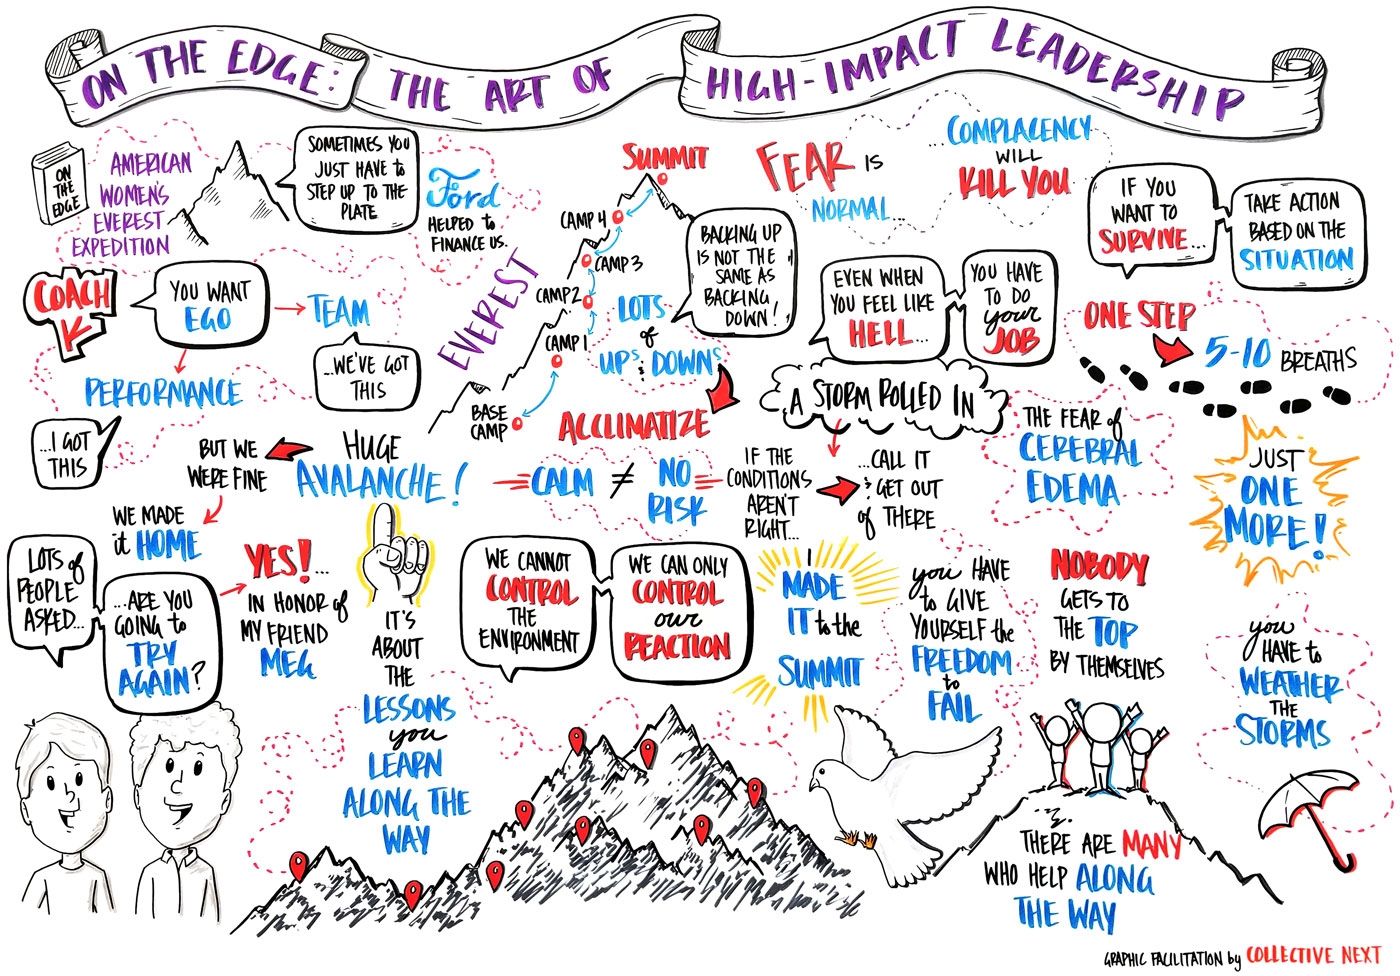 ON THE EDGE: THE ART OF HIGH-IMPACT LEADERSHIP
ON
THE
EDGE
AMERICAN
WOMEN'S
EVEREST
EXPEDITION
SOMETIMES YOU
JUST HAVE to
STEP UP TO THE
PLATE
Ford
HELPED to
FINANCE US.
COACH
K
YOU WANT
EGO
TEAM
...WE'VE GOT
THIS
PERFORMANCE
...I GOT
THIS
EVEREST
SUMMIT
CAMP 4
CAMP 3
CAMP 2
CAMP 1
BASE
CAMP
LOTS
of
UPS & DOWNS
BACKING UP
IS NOT THE
SAME AS
BACKING
DOWN!
ACCLIMATIZE
FEAR IS
NORMAL...
...COMPLACENCY
WILL
KILL YOU
IF YOU
WANT TO
SURVIVE...
TAKE ACTION
BASED ON THE
SITUATION
EVEN WHEN
YOU FEEL LIKE
HELL...
YOU HAVE
TO DO
your
JOB
ONE STEP
5-10 BREATHS
A STORM ROLLED IN
HUGE
AVALANCHE!
BUT WE
WERE FINE
WE MADE
it HOME
CALM ≠ NO
RISK
IF THE
CONDITIONS
AREN'T
RIGHT...
...CALL IT
& GET OUT
of THERE
THE FEAR of
CEREBRAL
EDEMA
JUST
ONE
MORE!
LOTS of
PEOPLE
ASKED...
...ARE YOU
GOING to
TRY
AGAIN?
YES!...
IN HONOR of
MY FRIEND
MEG
IT'S
ABOUT
THE
LESSONS
you
LEARN
ALONG THE
WAY
WE CANNOT
CONTROL
THE
ENVIRONMENT
WE CAN ONLY
CONTROL
our
REACTION
I
MADE
IT to the
SUMMIT
you HAVE
to GIVE
YOURSELF the
FREEDOM
to
FAIL
NOBODY
GETS TO
THE TOP
BY THEMSELVES
you
HAVE to
WEATHER
THE
STORMS
THERE ARE MANY
WHO HELP ALONG
THE WAY
GRAPHIC FACILITATION by COLLECTIVE NEXT